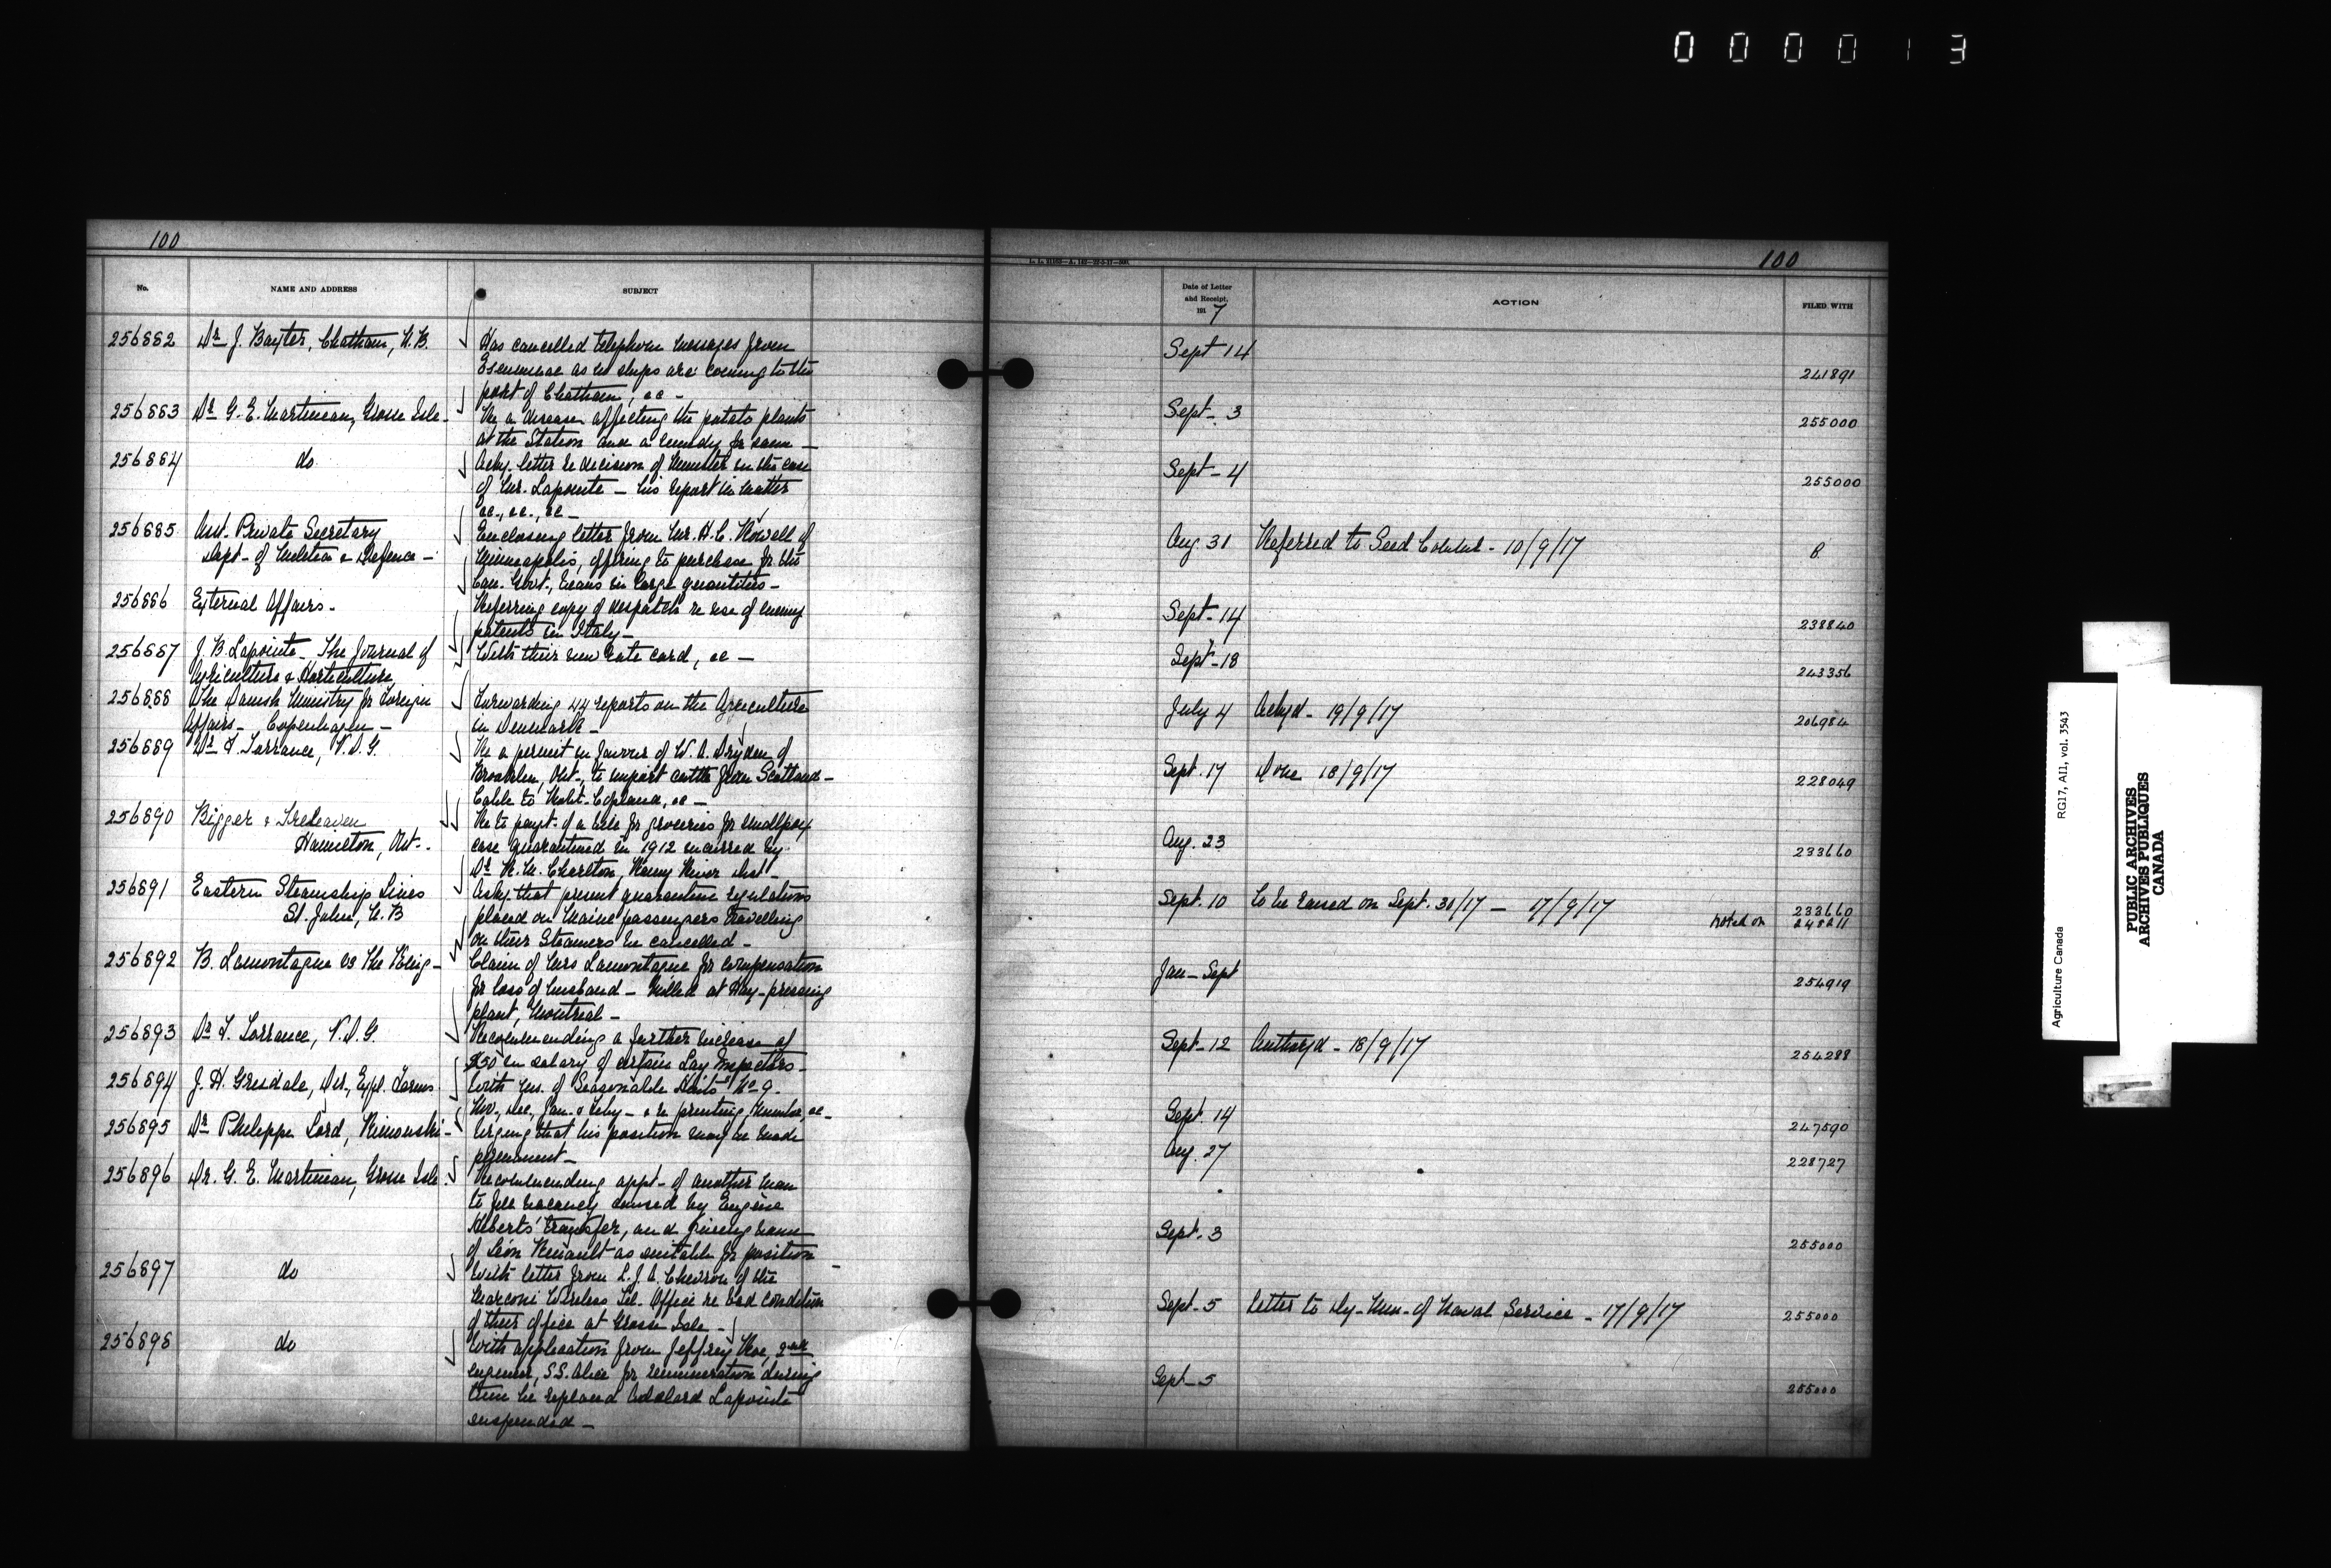 000013
100
No.
NAME AND ADDRESS
SUBJECT
256882 Dr J. Baxter, Chatham, N.B.
Has cancelled telephone messages from
Escuminac as no ships are coming to the
port of Chatham, &c -
256883 Dr G. E. Martineau, Grosse Isle -
Re a disease affecting the potato plants
at the Station and a remedy for same -
256884 do
Ackg. letter re decision of Minister in the case
of Mr. Lapointe - his report in matter
&c., &c., &c -
256885 Asst. Private Secretary
Dept - of Militia & Defence -
Enclosing letter from Mr. H.C. Howell of
Minneapolis, offering to purchase for the
Can. Govt., beans in large quantities -
256886 External Affairs -
Referring copy of despatch re use of enemy
patents in Italy -
256887 J. B. Lapointe - The Journal of
Agriculture & Horticulture
With their new rate card, &c -
256888 The Danish Ministry for Foreign
Affairs - Copenhagen -
Forwarding 44 reports on the Agriculture
in Denmark -
256889 Dr F. Torrance, V.D.G.
Re a permit in favour of W. A. Dryden of
Brooklin, Ont., to import cattle from Scotland -
Cable to Robt. Copland, &c -
256890 Bigger & Treleaven
Hamilton, Ont -
Re to payt. of a bill for groceries for smallpox
case quarantined in 1912 incurred by
Dr R. M. Charlton, Rainy River Dist -
256891 Eastern Steamship Lines
St. John, N.B
Askg that present quarantine regulations
placed on Maine passengers travelling
on their Steamers be cancelled -
256892 B. Lamontagne vs The King -
Claim of Mrs Lamontagne for compensation
for loss of husband - killed at Hay-pressing
plant, Montreal -
256893 Dr F. Torrance, V.D.G.
Recommending a further increase of
$50 in salary of certain Lay Inspectors -
256894 J. H. Grisdale, Dir, Expl. Farms.
With ms. of "Seasonable Hints" No 9.
Nov., Dec., Jan. & Feby - & re printing, number, &c -
256895 Dr Philippe Lord, Rimouski -
Urging that his position may be made
permanent -
256896 Dr. G. E. Martineau, Grosse Isle.
Recommending appt - of another man
to fill vacancy caused by Eugène
Heberts' transfer, and giving name
of Léon Renault as suitable for position -
256897 do
With letter from L. J. A. Chevron of the
Marconi Wireless Tel. Office re bad condition
of their office at Grosse Isle -
256898 do
With application from Jeffrey Roe, 2nd
engineer, S.S. Alice for remuneration during
time he replaced Adelard Lapointe
suspended -
100
Date of Letter
and Receipt,
191 7
ACTION
FILED WITH
Sept 14 241891
Sept - 3 255000
Sept - 4 255000
Aug 31 Referred to Seed Commr. - 10/9/17 8
Sept - 14 238840
Sept - 18 243356
July 4 Ackgd - 19/9/17 206984
Sept. 17 Done 18/9/17 228049
Aug. 23 233660
Sept. 10 To be raised on Sept. 30/17 - 17/9/17 233660
noted on 248211
Jan - Sept 254919
Sept - 12 Authorzd - 18/9/17 254288
Sept. 14 247590
Aug. 27 228727
Sept. 3 255000
Sept. 5 Letter to Dy - Min - of Naval Service - 17/9/17 255000
Sept - 5 255000
Agriculture Canada RG17, A11, vol. 3543
PUBLIC ARCHIVES
ARCHIVES PUBLIQUES
CANADA